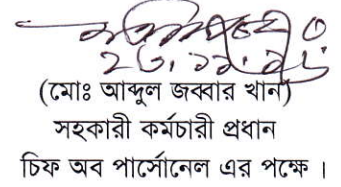 (মোঃ আব্দুল জব্বার খান)
সহকারী কর্মচারী প্রধান
চিফ অব পার্সোনেল এর পক্ষে।